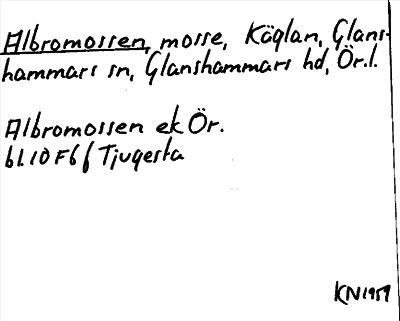 Albromossen, mosse, Käglan, Glans-
hammars sn, Glanshammars hd, Ör.l.
Albromossen ek Ör.
61.10 F6 f Tjugesta
KN 1959